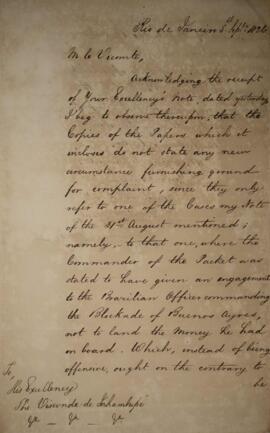 Rio de Janeiro 5th Sept. 1826
M. le Vicomte,
Acknowledging the receipt
of Your Excellency's Note, dated yesterday
I beg to observe thereupon, that the
Copies of the Papers which it
incloses do not state any new
circumstance furnishing ground
for complaint, since they only
refer to one of the Cases my Note
of the 31st August mentioned;
namely, to that one, where the
Commander of the Packet was
stated to have given an engagement
to the Brazilian Officer commanding
the Blockade of Buenos Ayres,
not to land the Money he had
on board. Which, instead of being
offensive, ought on the contrary to
be
To,
His Excellency
The Viscount de Inhambupé
&c _ &c _ &c